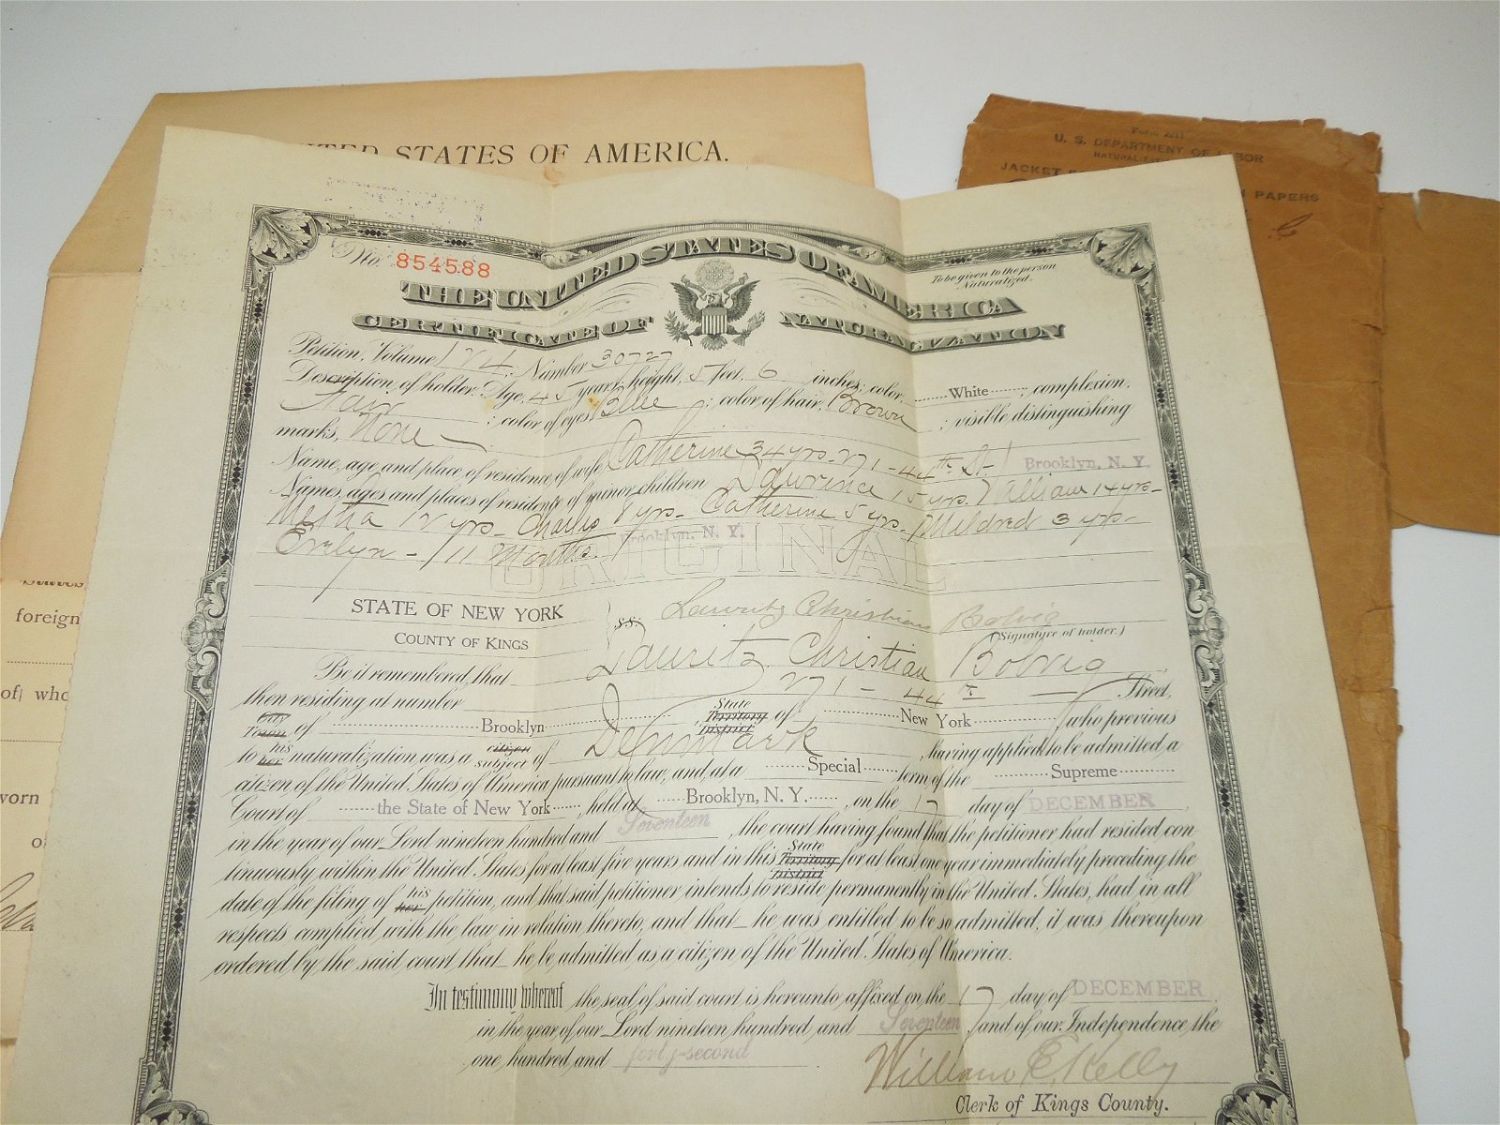 UNITED STATES OF AMERICA.
Form 2211
U. S. DEPARTMENT OF LABOR
JACKET
PAPERS
No. 854588
To be given to the person
Naturalized.
THE UNITED STATES OF AMERICA
CERTIFICATE OF NATURALIZATION
Petition, Volume 124, Number 30727
Description of holder: Age, 45 years; height, 5 feet, 6 inches; color, White; complexion,
Fair; color of eyes, Blue; color of hair, Brown; visible distinguishing
marks, None
Name, age and place of residence of wife Catherine 34 yrs. 271 - 44th St. Brooklyn, N. Y.
Names, ages and places of residence of minor children Lawrence 15 yrs. William 14 yrs -
Metha 12 yrs - Charles 8 yrs - Catherine 5 yrs - Mildred 3 yrs -
Evelyn - 11 Months. Brooklyn, N. Y.
ORIGINAL
STATE OF NEW YORK
COUNTY OF KINGS
ss: Lauritz Christian Bolvig
(Signature of holder.)
Be it remembered, that Lauritz Christian Bolvig
then residing at number 271 - 44th Street,
City Town of Brooklyn, State Territory District of New York, who previous
to his her naturalization was a citizen subject of Denmark, having applied to be admitted a
citizen of the United States of America pursuant to law, and at a Special term of the Supreme
Court of the State of New York, held at Brooklyn, N. Y., on the 17 day of DECEMBER,
in the year of our Lord nineteen hundred and Seventeen, the court having found that the petitioner had resided con
tinuously within the United States for at least five years and in this State Territory District for at least one year immediately preceding the
date of the filing of his her petition, and that said petitioner intends to reside permanently in the United States, had in all
respects complied with the law in relation thereto, and that he was entitled to be so admitted, it was thereupon
ordered by the said court that he be admitted as a citizen of the United States of America.
In testimony whereof the seal of said court is hereunto affixed on the 17 day of DECEMBER,
in the year of our Lord nineteen hundred and Seventeen, and of our Independence the
one hundred and forty-second
William E. Kelly
Clerk of Kings County.
States
foreign
of who
worn